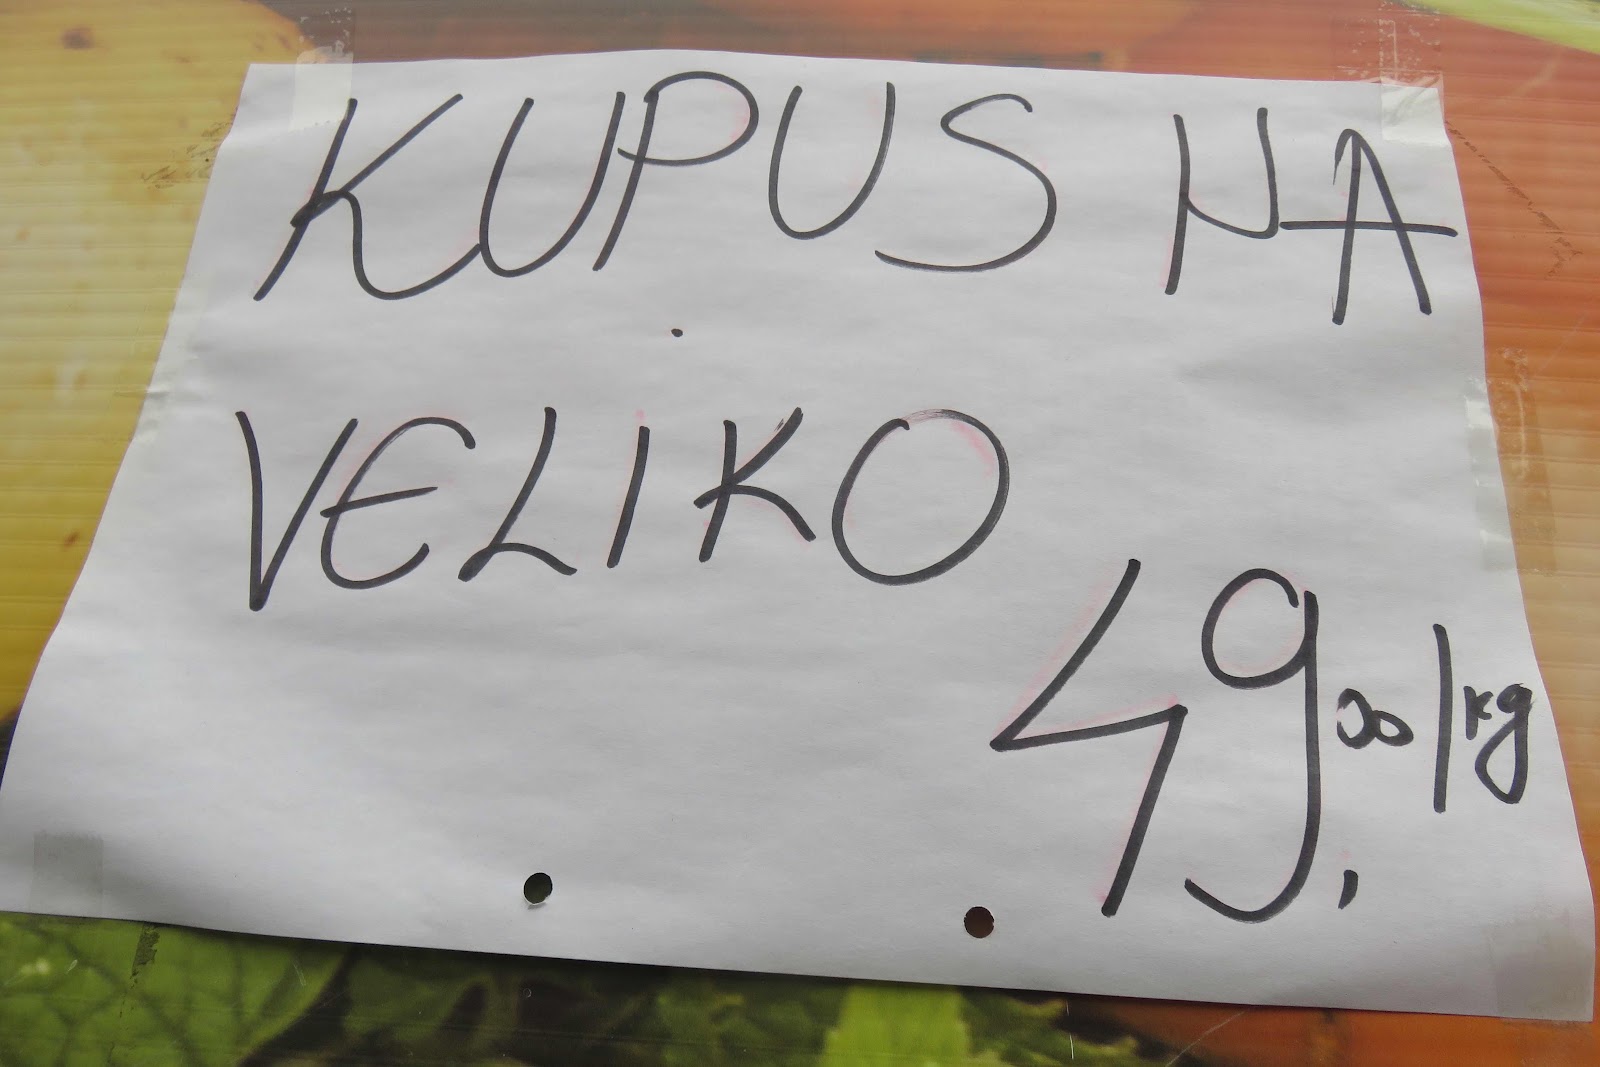 KUPUS NA
VELIKO
49,00/kg